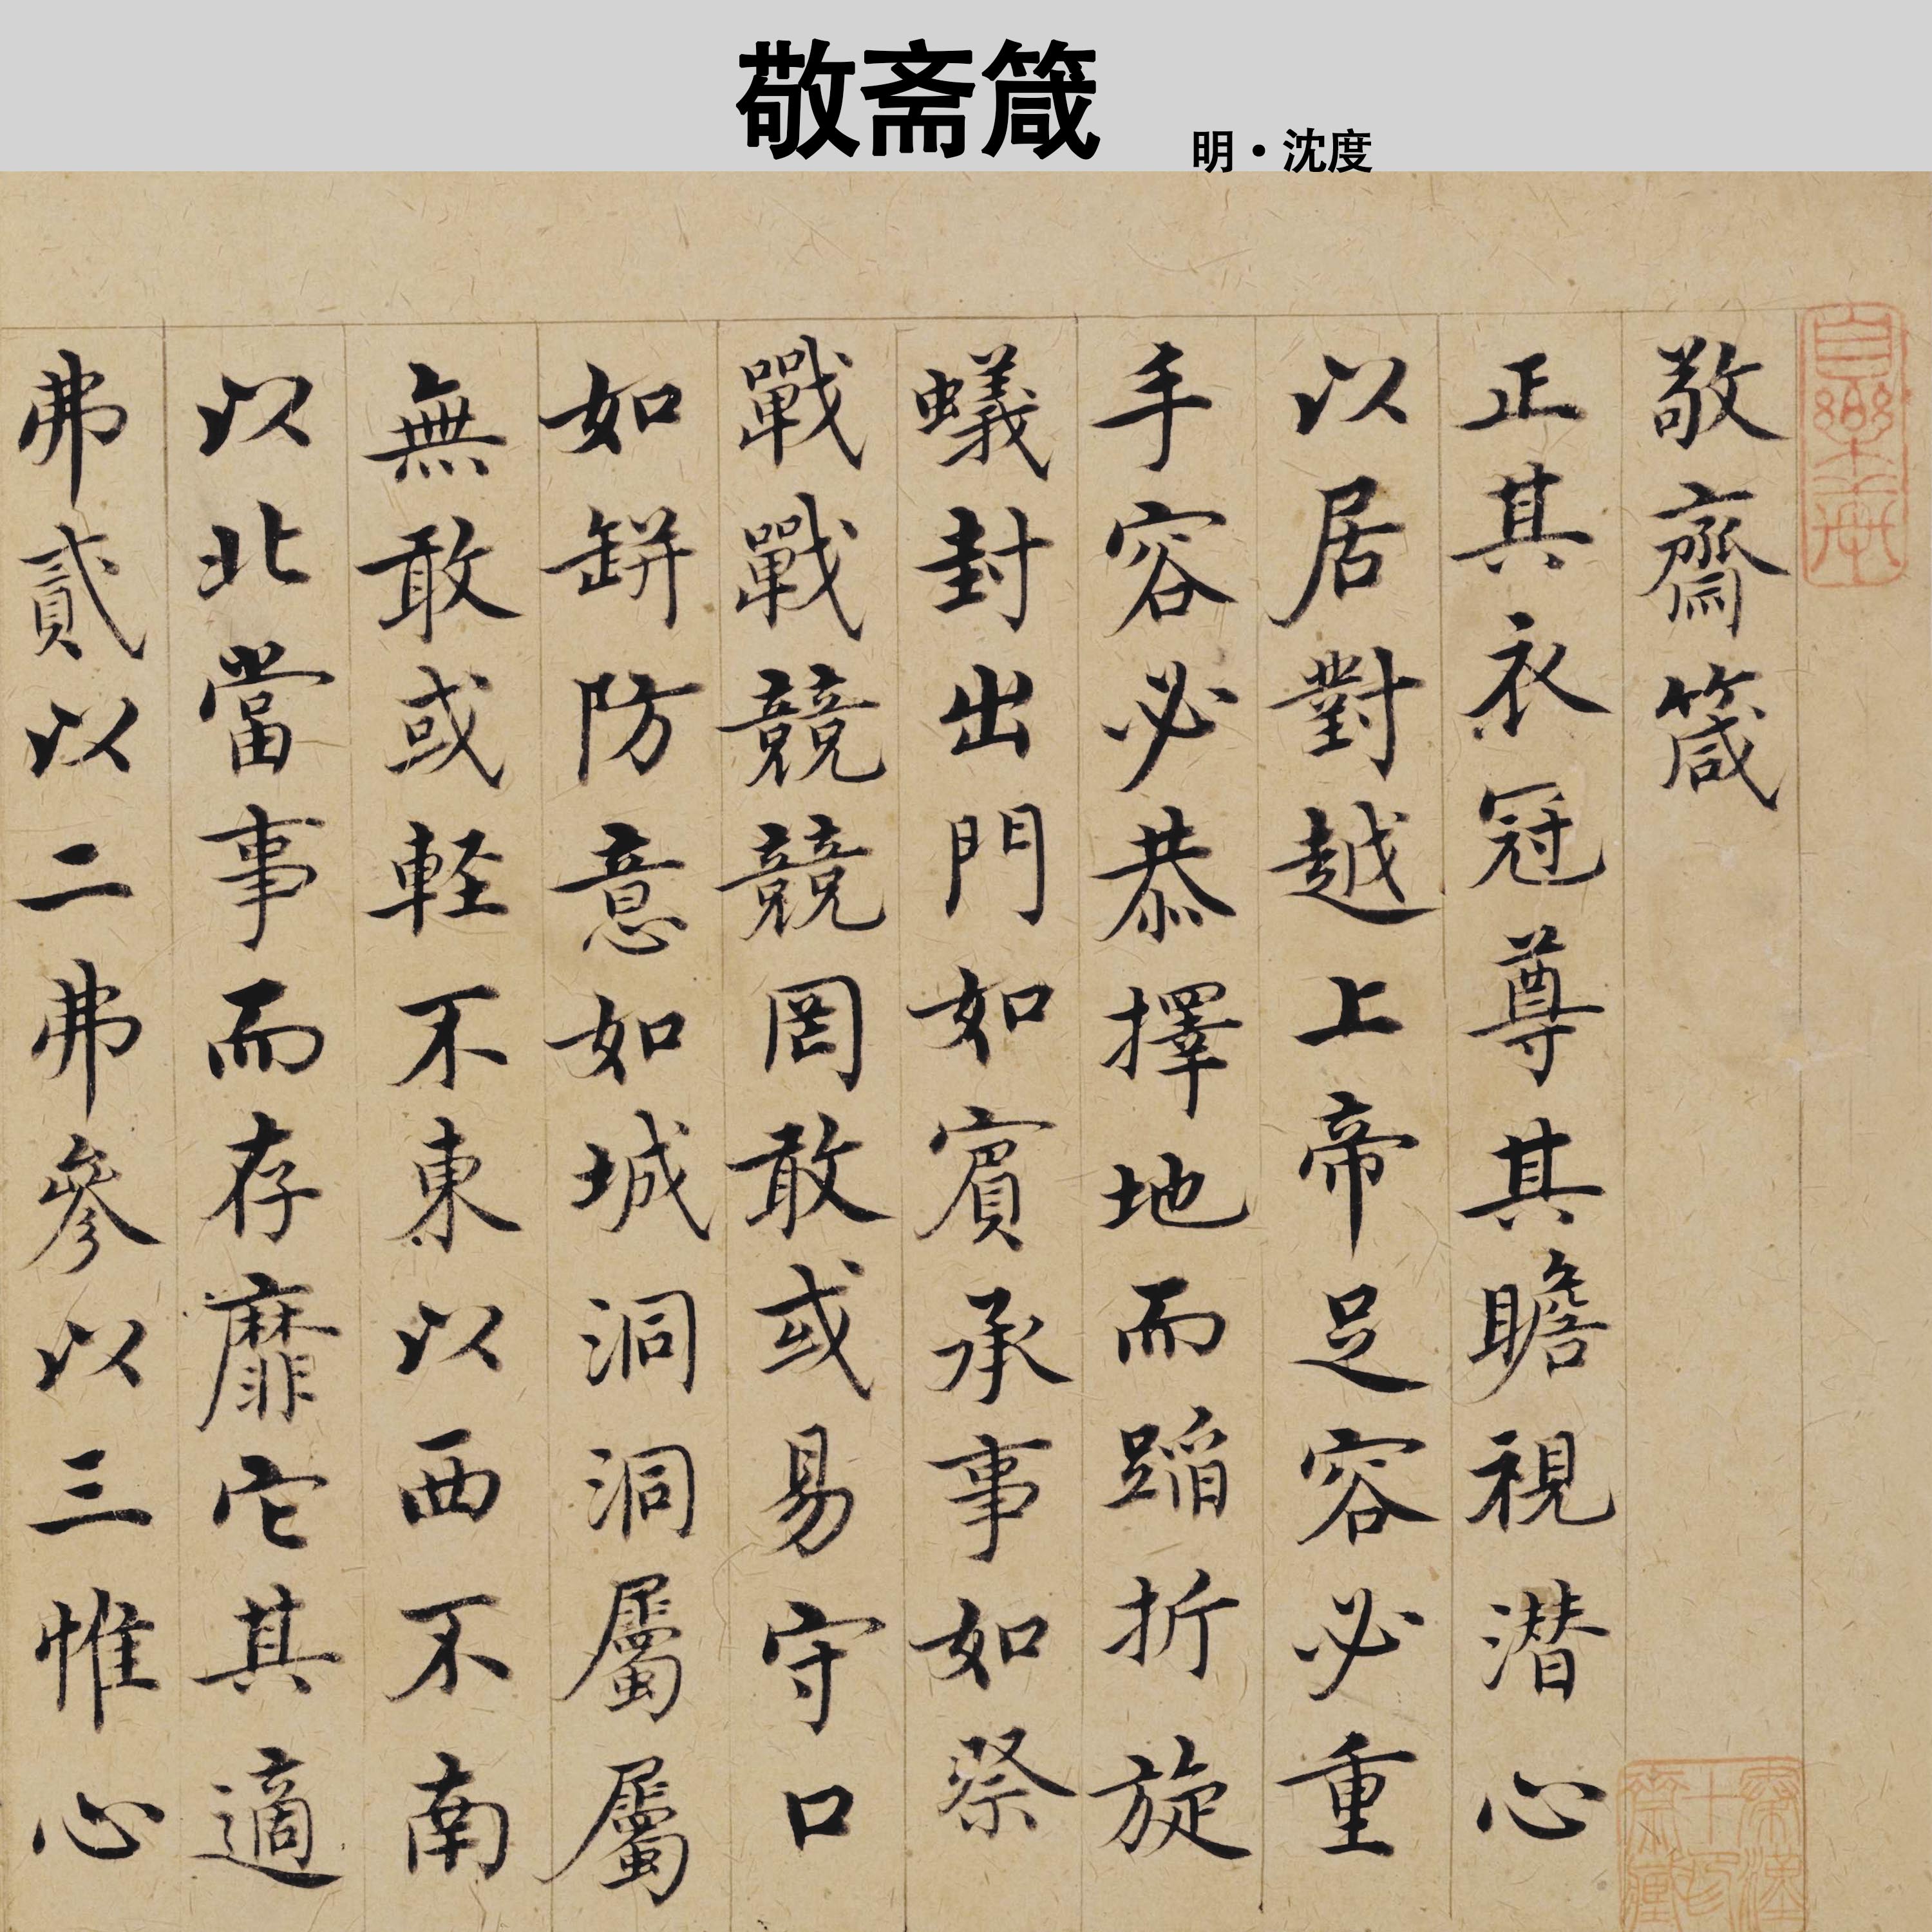 敬斋箴
明·沈度
敬齋箴
正其衣冠尊其瞻視潛心
以居對越上帝足容必重
手容必恭擇地而蹈折旋
蟻封出門如賓承事如祭
戰戰兢兢罔敢或易守口
如缾防意如城洞洞屬屬
無敢或輕不東以西不南
以北當事而存靡它其適
弗貳以二弗參以三惟心